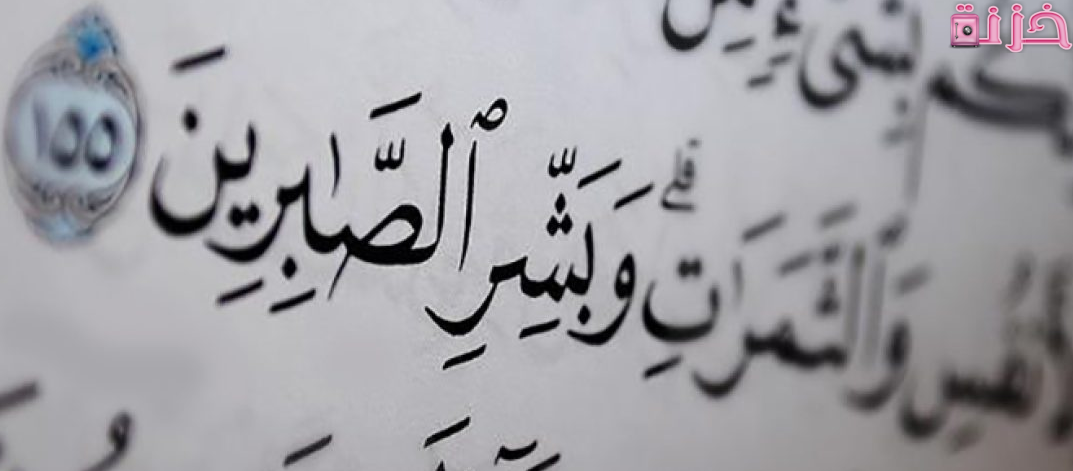 خزنة
بِشَىْءٍ مِّنَ
وَٱلثَّمَرَٰتِ ۗ وَبَشِّرِ ٱلصَّـٰبِرِينَ ١٥٥